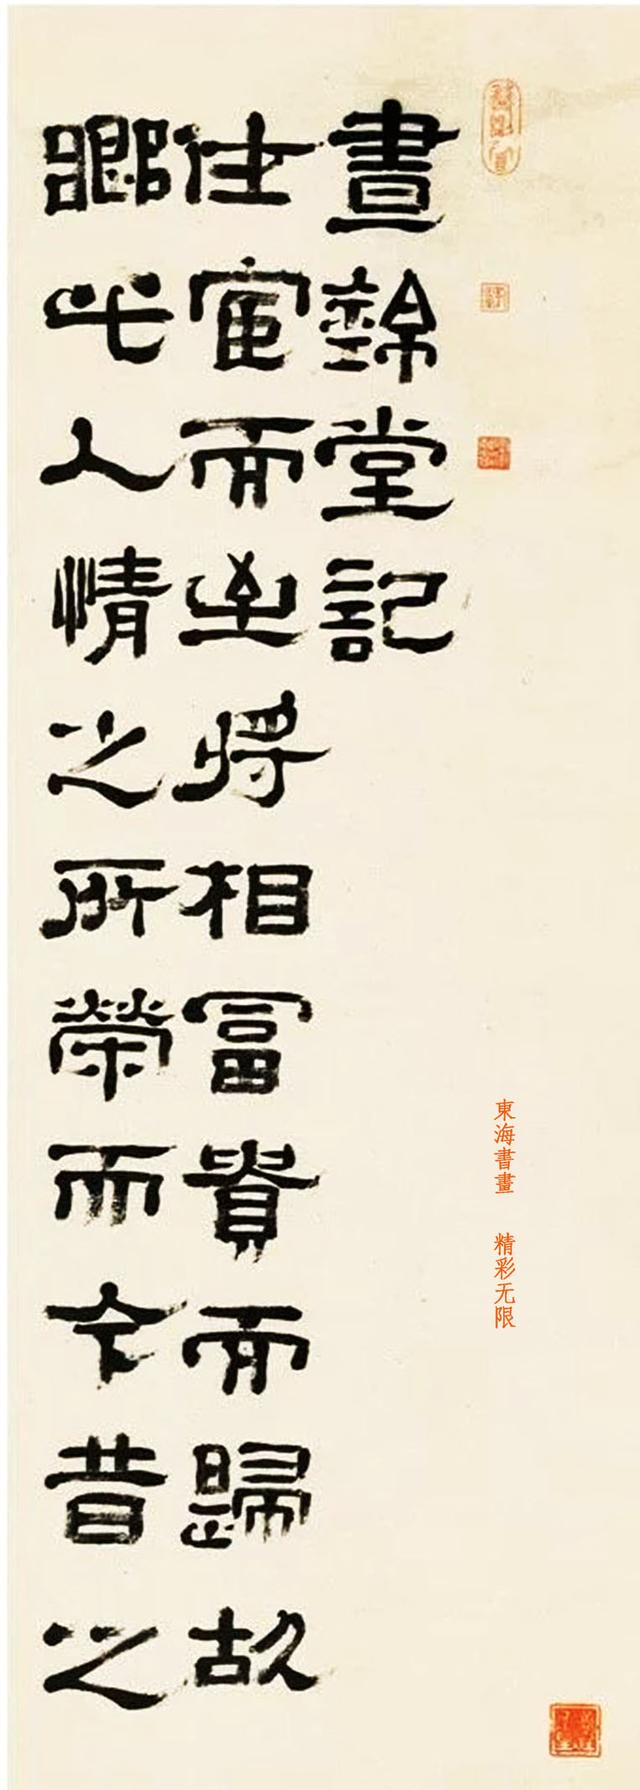 東海書畫 精彩无限
晝錦堂記
仕宦而至將相富貴而歸故
鄉此人情之所榮而今昔之